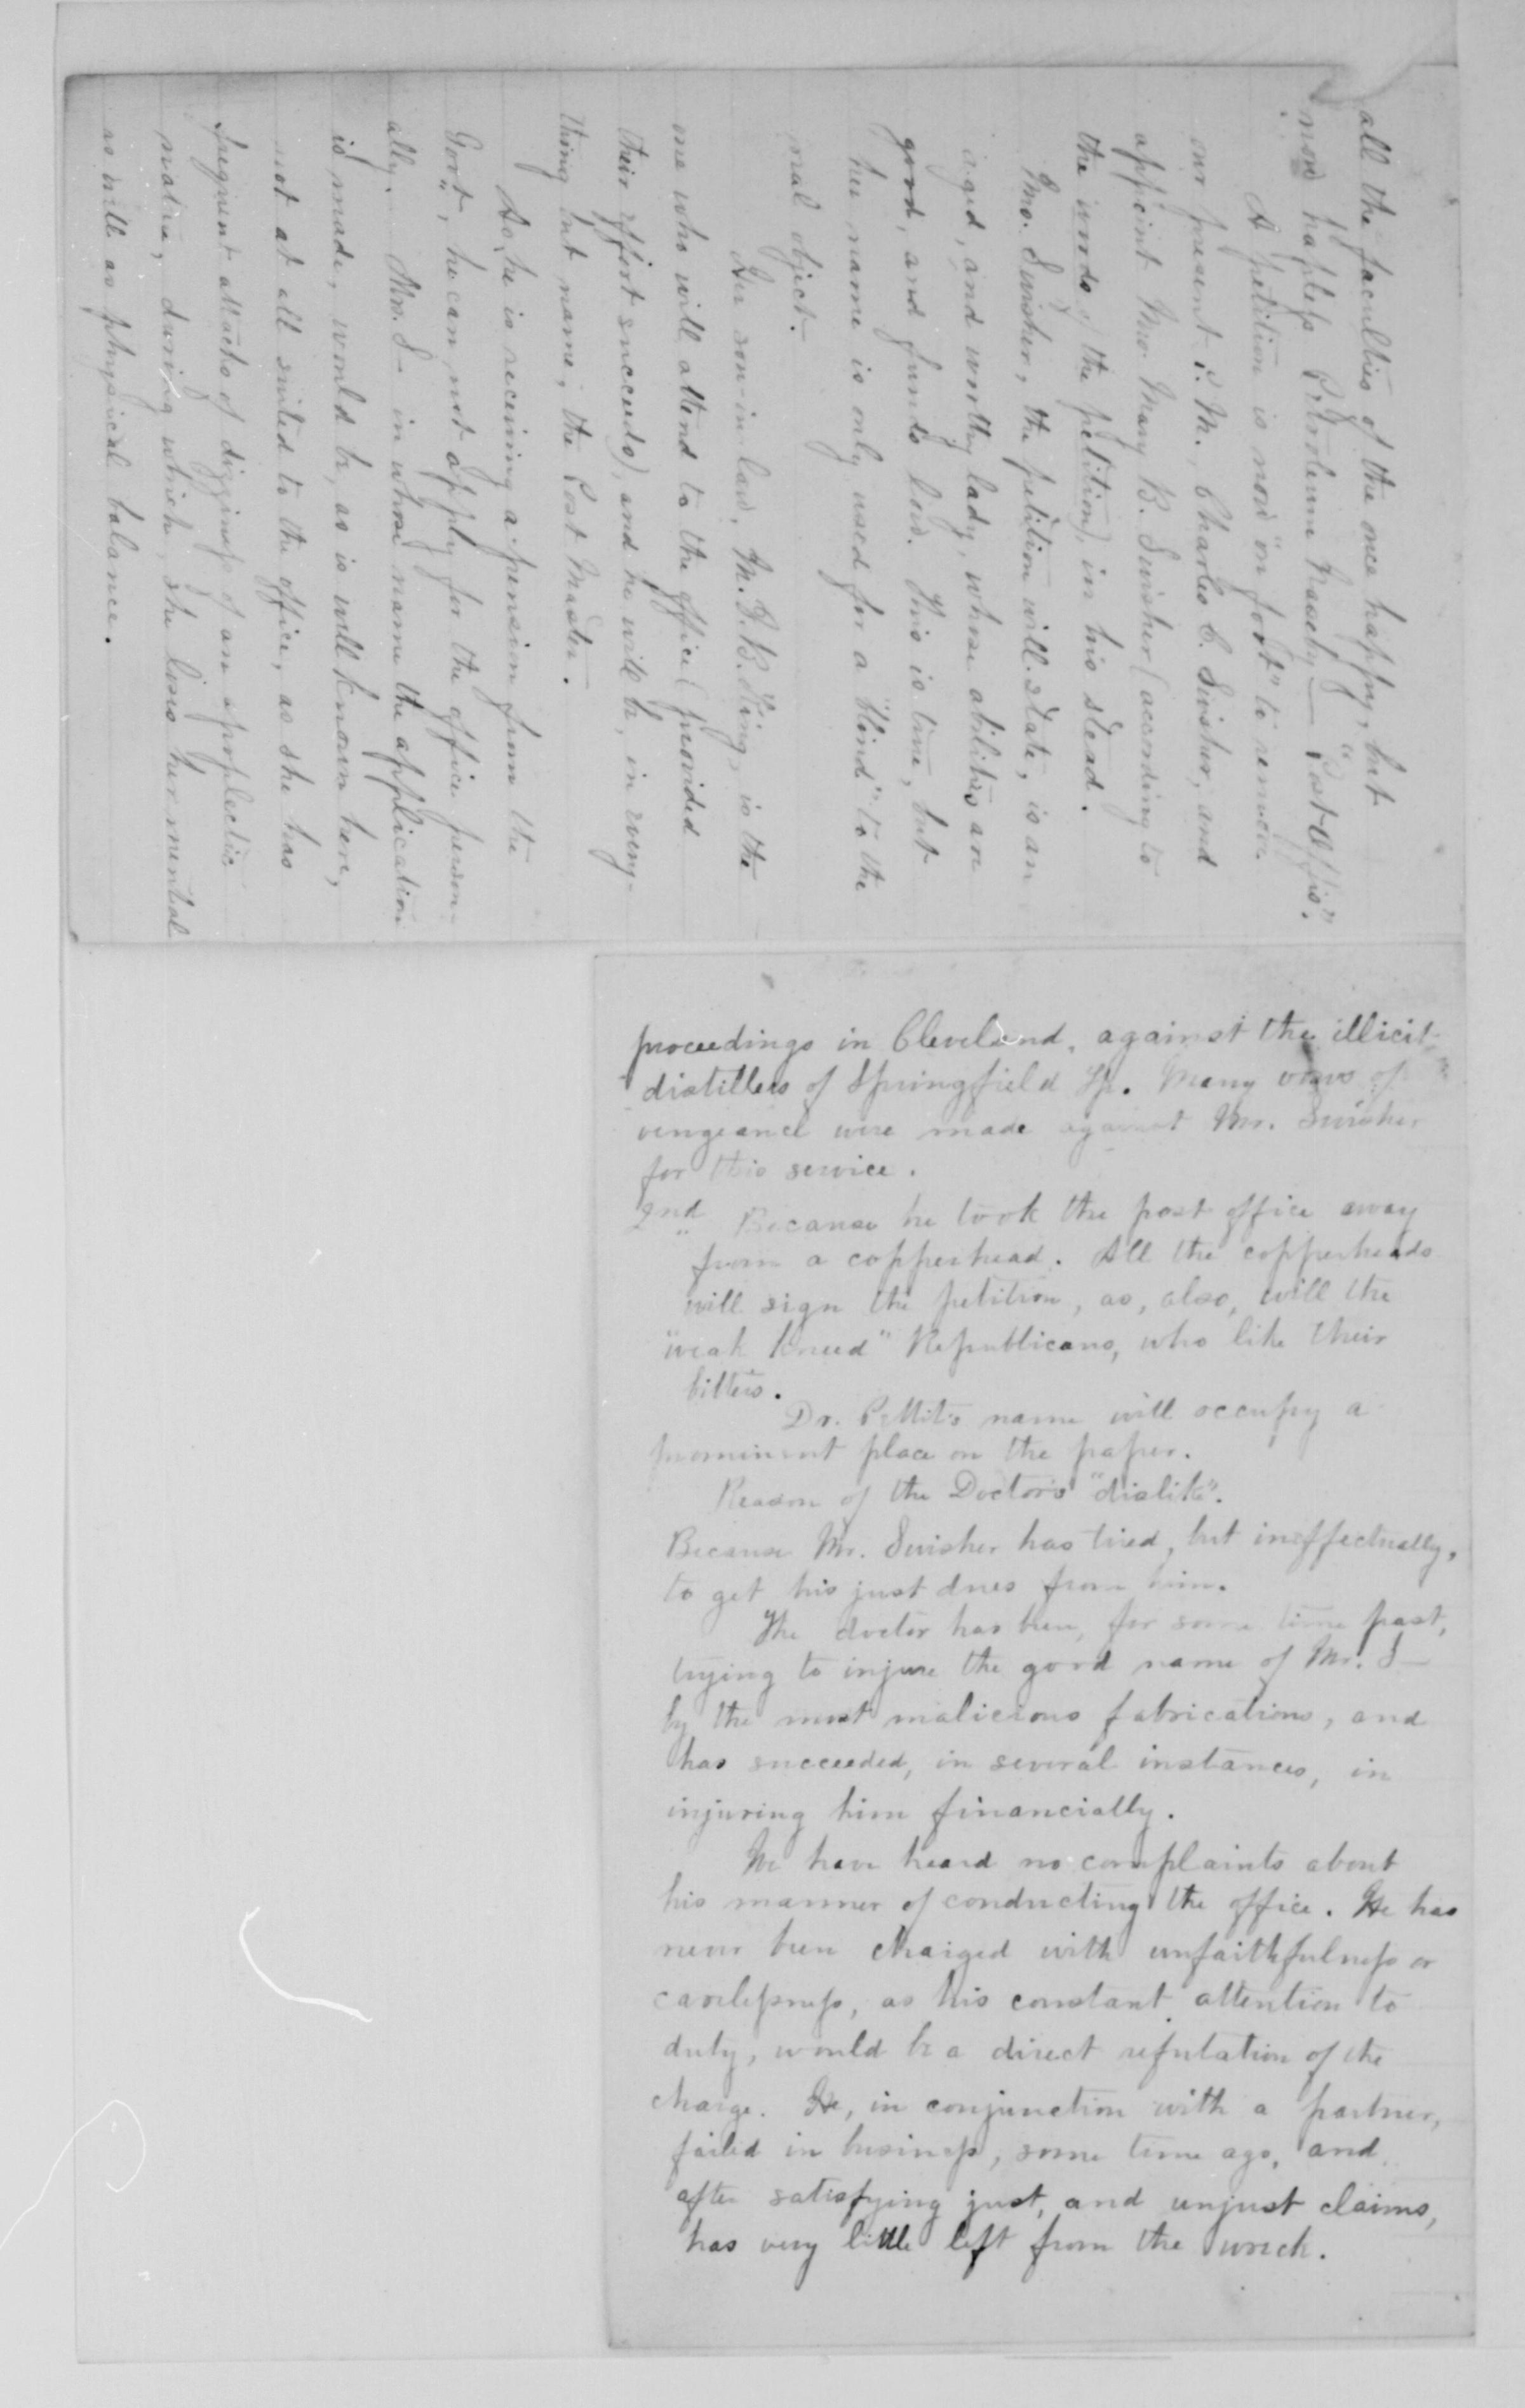 all the faculties of the once happy, but
now hapless Petroleum Nasely — "Post Offis".
A petition is now "on foot" to remove
our present P. M., Charles C. Swisher, and
appoint Mrs. Mary B. Swisher (according to
the words of the petition), in his stead.
Mrs. Swisher, the petition will state, is an
aged, and worthy lady, whose abilities are
good, and funds low. This is true, but
her name is only used for a "blind" to the
real object.
Her son-in-law, M. F. B. King, is the
one who will attend to the office (provided
their effort succeeds), and he will be, in every-
thing but name, the Post Master.
As he is receiving a pension from the
Gov't, he can not apply for the office person-
ally. Mrs. S— in whose name the application
is made, would be, as is well known here,
not at all suited to the office, as she has
frequent attacks of dizziness of an apoplectic
nature, during which, she loses her mental
as well as physical balance.
proceedings in Cleveland, against the illicit
distillers of Springfield Tp. Many vows of
vengeance were made against Mr. Swisher
for this service.
2nd Because he took the post office away
from a copperhead. All the copperheads
will sign the petition, as, also, will the
"weak kneed" Republicans, who like their
bitters.
Dr. Pettit's name will occupy a
prominent place on the paper.
Reason of the Doctor's "dislike".
Because Mr. Swisher has tried, but ineffectually,
to get his just dues from him.
The doctor has been, for some time past,
trying to injure the good name of Mr. S—
by the most malicious fabrications, and
has succeeded, in several instances, in
injuring him financially.
We have heard no complaints about
his manner of conducting the office. He has
never been charged with unfaithfulness or
carelessness, as his constant attention to
duty, would be a direct refutation of the
charge. He, in conjunction with a partner,
failed in business, some time ago, and
after satisfying just, and unjust claims,
has very little left from the wreck.